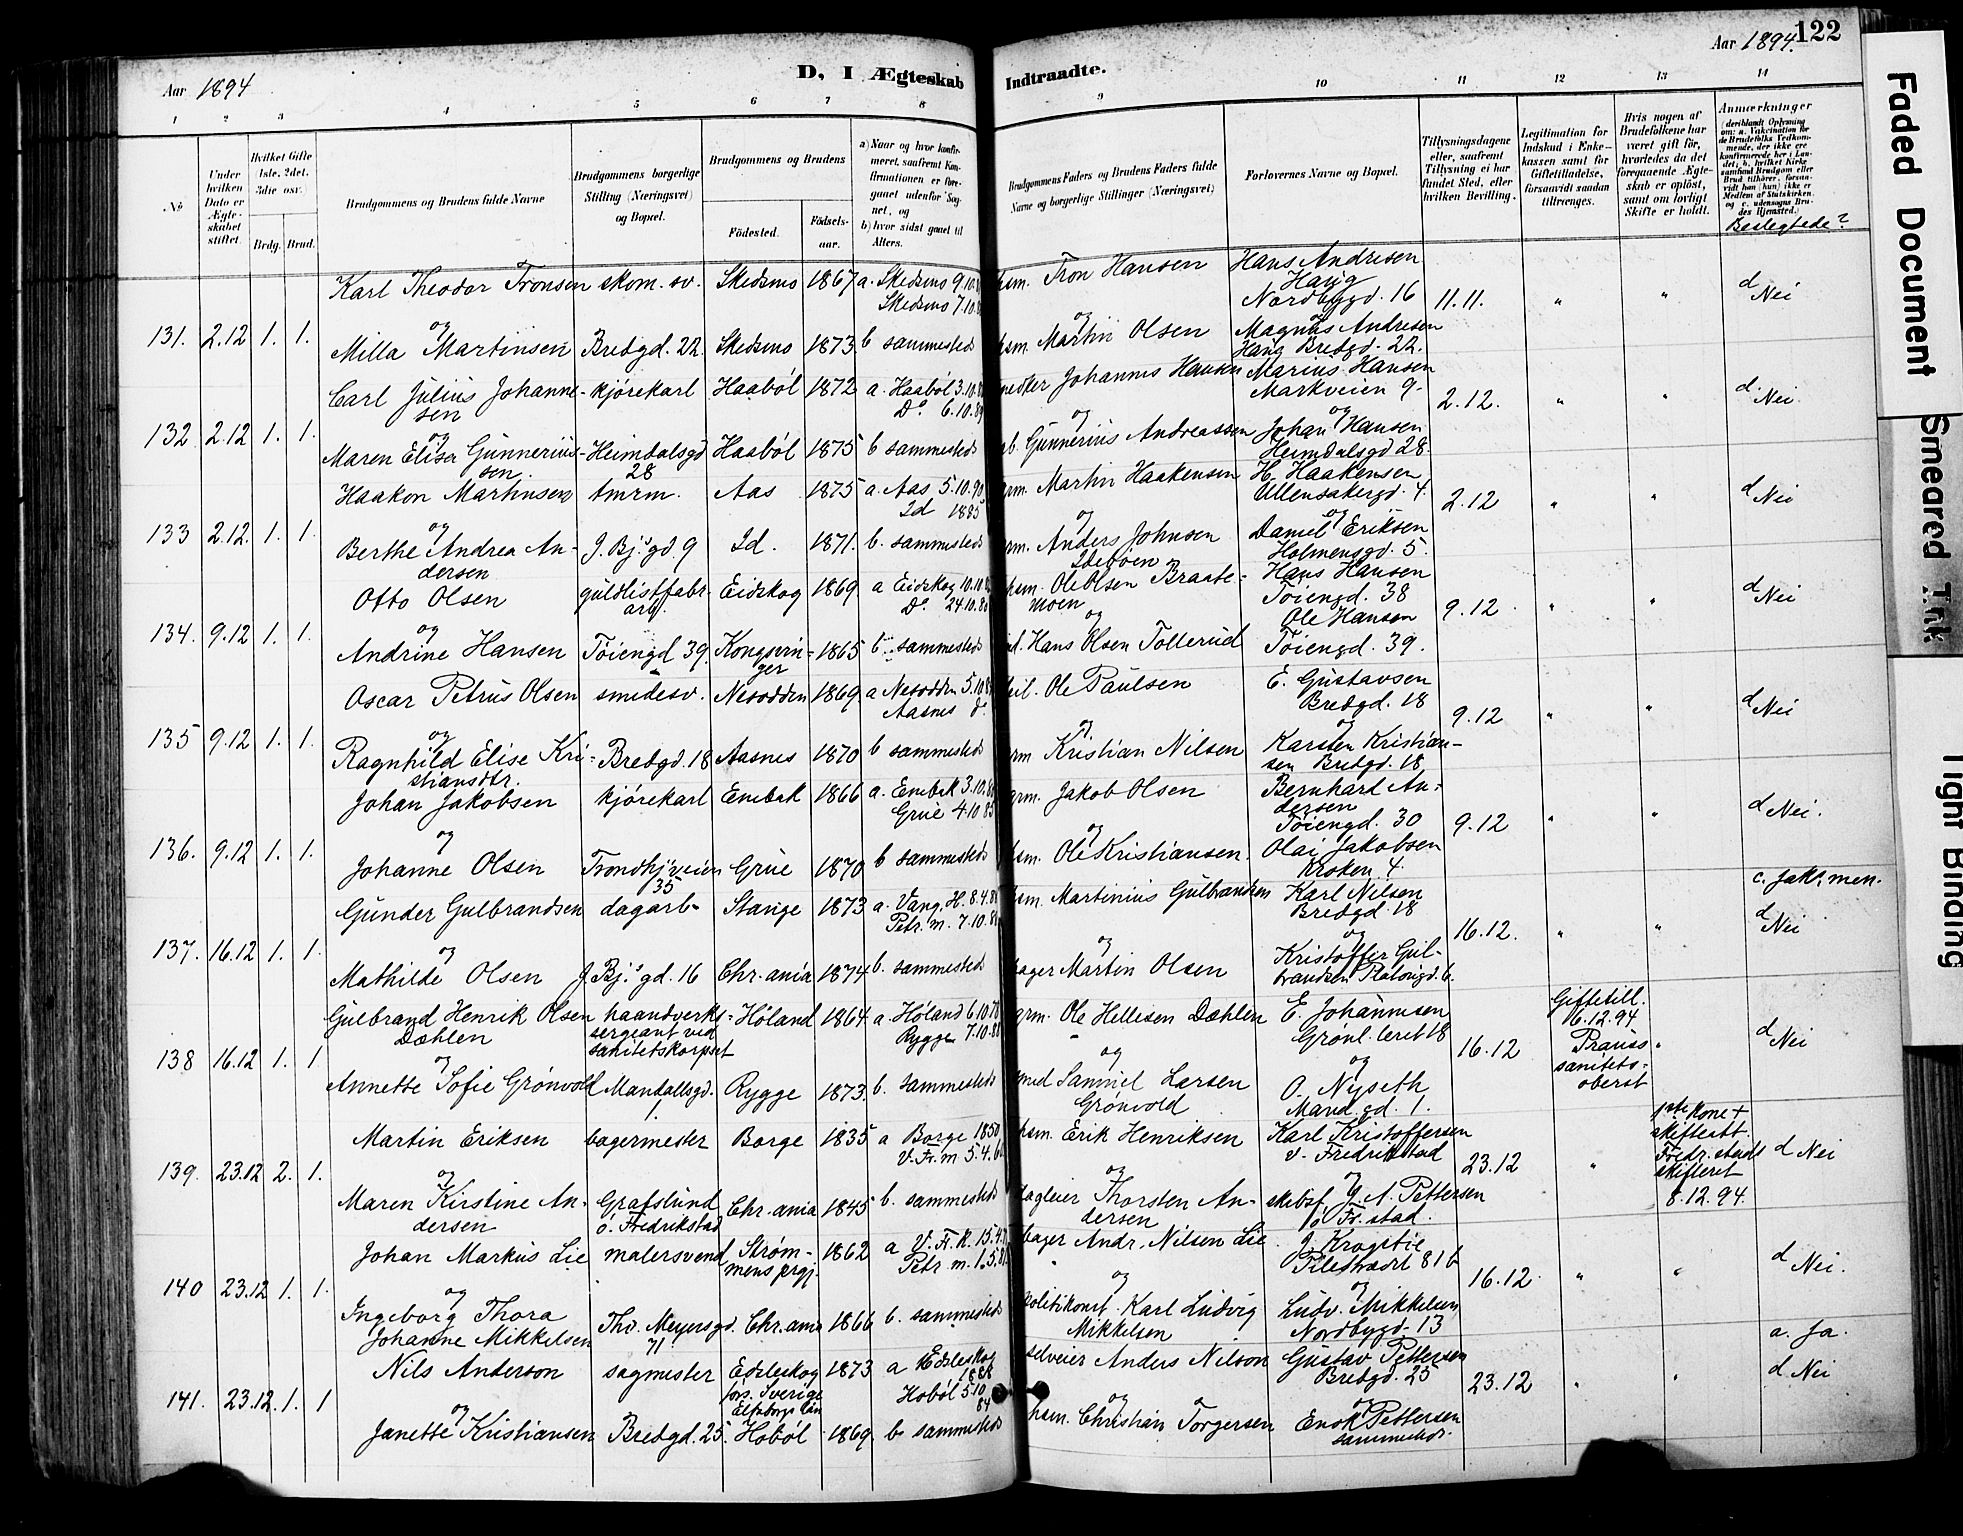 Aar 1894
D, I Ægteskab
Indtraadte.
Aar 1894
122
1 2 3 4 5 6 7 8 9 10 11 12 13 14
No
Under hvilken Dato er Ægteskabet stiftet.
Hvilket Gifte (1ste, 2det, 3die osv.
Brdg. Brud.
Brudgommens og Brudens fulde Navne
Brudgommens borgerlige Stilling (Næringsvei) og Bopæl.
Brudgommens og Brudens
Fødested. Fødselsaar.
a) Naar og hvor konfirmeret, saafremt Konfirmationen er foregaaet udenfor Sognet, og
b) hvor sidst gaaet til Alters.
Brudgommens Faders og Brudens Faders fulde Navne og borgerlige Stillinger (Næringsvei)
Forlovernes Navne og Bopæl.
Tillysningsdagene eller, saafremt Tillysning ei har fundet Sted, efter hvilken Bevilling.
Legitimation for Indskud i Enkekassen samt for Giftetilladelse, forsaavidt saadan tiltrænges.
Hvis nogen af Brudefolkene har været gift før, hvorledes da det foregaaende Ægteskab er opløst, samt om lovligt Skifte er holdt.
Anmærkninger
Beslegtede?
131. 2.12 1. 1.
Karl Theodor Tronsen skom. sv. Skedsmo 1867 a. Skedsmo 9.10
Skedsmo 7.10
hsm. Tron Hansen Hans Andresen
Haug
Nordbygd. 16 11.11. " " d Nei
og
Milla Martinsen Bredgd. 22. Skedsmo 1873. b sammesteds
hsm. Martin Olsen Magnus Andresen
Haug Bredgd. 22.
132. 2.12 1. 1.
Carl Julius Johannesen kjørekarl Haabøl 1872 a. Haabøl 3.10
Do 6.10.89
Johannes Hansen Marius Hansen
Markveien 9. 2.12. " " d Nei.
og
Maren Elise Gunneriussen Heimdalsgd 28 Haabøl 1875 b sammesteds
Gunnerius Andreassen Johan Hansen
Heimdalsgd 28.
133 2.12. 1. 1.
Haakon Martinsen tmrm. Aas 1875 a. Aas 5.10.90
Id 1885
Martin Haakensen H. Haakensen
Ullensakergd. 4. 2.12 " " d Nei
og
Berthe Andrea Andersen J. Bj.s gd. 9 Id. 1871. b. sammesteds
Anders Johnsen
Idebøen
Daniel Eriksen
Holmensgd. 5.
134. 9.12 1. 1.
Otto Olsen guldlistfabr. arb. Eidskog 1869 a Eidskog 10.10
Do. 24.10
hsm. Ole Olsen Braatemoen Hans Hansen
Tøiengd. 38
9.12 " " d Nei
og
Andrine Hansen Tøiengd 39. Kongsvinger 1865 b. sammesteds
Hans Olsen Tollerud Ole Hansen
Tøiengd. 39.
135 9.12 1. 1.
Oscar Petrus Olsen smedesv. Nesodden 1869. a Nesodden 5.10
Aasnes do
Ole Paulsen E. Gustavsen
Bredgd. 18 9.12 " " d Nei
og
Ragnhild Elise Kristiansdtr. Bredgd. 18 Aasnes 1870 b sammesteds
Kristian Nilsen Karsten Kristiansen Bredgd. 18
136. 9.12 1. 1.
Johan Jakobsen kjørekarl Enebak 1866 a. Enebak 3.10
Grue 4.10.85
Jakob Olsen Bernhard Andersen
Tøiengd. 30 9.12 " " d Nei.
og
Johanne Olsen Trondhj.veien 35 Grue 1870 b sammesteds
hsm. Ole Kristiansen. Olai Jakobsen
Kroken 4.
137. 16.12 1. 1.
Gunder Gulbrandsen dagarb. Stange 1873 a. Vang, H. 8.4
Petr. m. 7.10
hsm. Martinius Gulbandsen Karl Nilsen
Bredgd. 18 16.12. " " c. Jak. men.
d Nei
og
Mathilde Olsen J. Bj.s gd. 16 Chr.ania 1874 b. sammesteds
Martin Olsen Kristoffer Gulbrandsen Platousgd. 6
138 16.12 1. 1
Gulbrand Henrik Olsen Dæhlen haandverkssergeant ved sanitetskorpset Høland 1864 a. Høland 6.10.78
Rygge 7.10.88
Ole Hellesen Dæhlen E. Johannesen
Grønl. leret 18 16.12
Giftetill.
6.12.94
sanitetsoberst
" d Nei
og
Annette Sofie Grønvold Mandallsgd. 1. Rygge 1873. b. sammesteds
smed Samuel Larsen
Grønvold
O. Nyseth
Mand.gd. 1.
139. 23.12 2. 1.
Martin Eriksen bagermester Borge 1835 a Borge 1850
V. Fr. m 5.4
hsm. Erik Henriksen Karl Kristoffersen
v. Fredrikstad 23.12 "
1ste Kone +
skifteatt.
Fredr.stads
skifteret
8.12.94.
d Nei
og
Maren Kirstine Andersen Grafslund ø. Fredrikstad Chr.ania 1845 b. sammesteds
Thorsten Andersen skibsf. J. A. Pettersen
ø Fr.stad.
140 23.12 1. 1.
Johan Markus Lie malersvend Strømmens prgj. 1862 a V. Fr. K. 15.4
Petr. m. 1.5
bager Andr. Nilsen Lie J. Krogstie
Pilestrædet 81 b 16.12. " " d Nei.
og
Ingeborg Thora
Johanne Mikkelsen Thv. Meyersgd. 71 Chr.ania 1866 b. sammesteds
politikonst. Karl Ludvig
Mikkelsen
Ludv. Mikkelsen
Nordbygd. 13
141. 23.12. 1. 1
Nils Anderson sagmester Edsleskog
førs. Sverige
Elfsborgs län
1873 a Edsleskog
1888
Hobøl 5.10
84
selveier Anders Nilson Gustav Pettersen
Bredgd. 25 23.12 " " a. Ja.
d Nei
og
Janette Kristiansen Bredgd. 25. Hobøl 1869. b sammesteds
hsm. Christian Torgersen Enok Pettersen
sammesteds.
Faded Document
Smeared Ink
Tight Binding